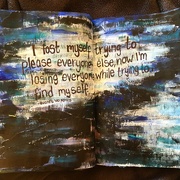 I lost myself trying to
please everyone else, now I'm
losing everyone while trying to
find myself.